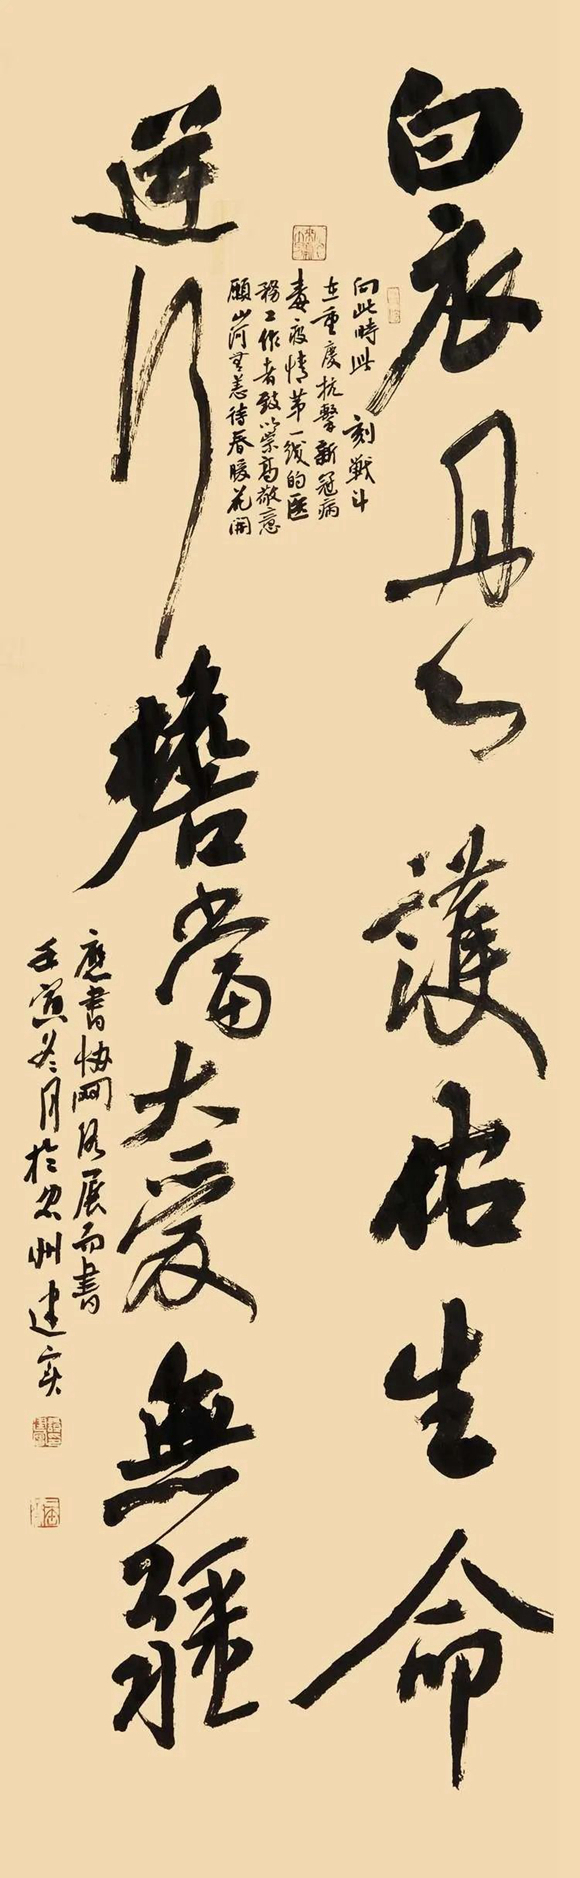 白衣丹心護佑生命
逆行擔當大愛無疆
向此時此刻戰斗
在重慶抗擊新冠病
毒疫情第一线的医
務工作者致以崇高敬意
願山河無恙待春暖花開
應書協網络展而書
壬寅冬月於忠州建实